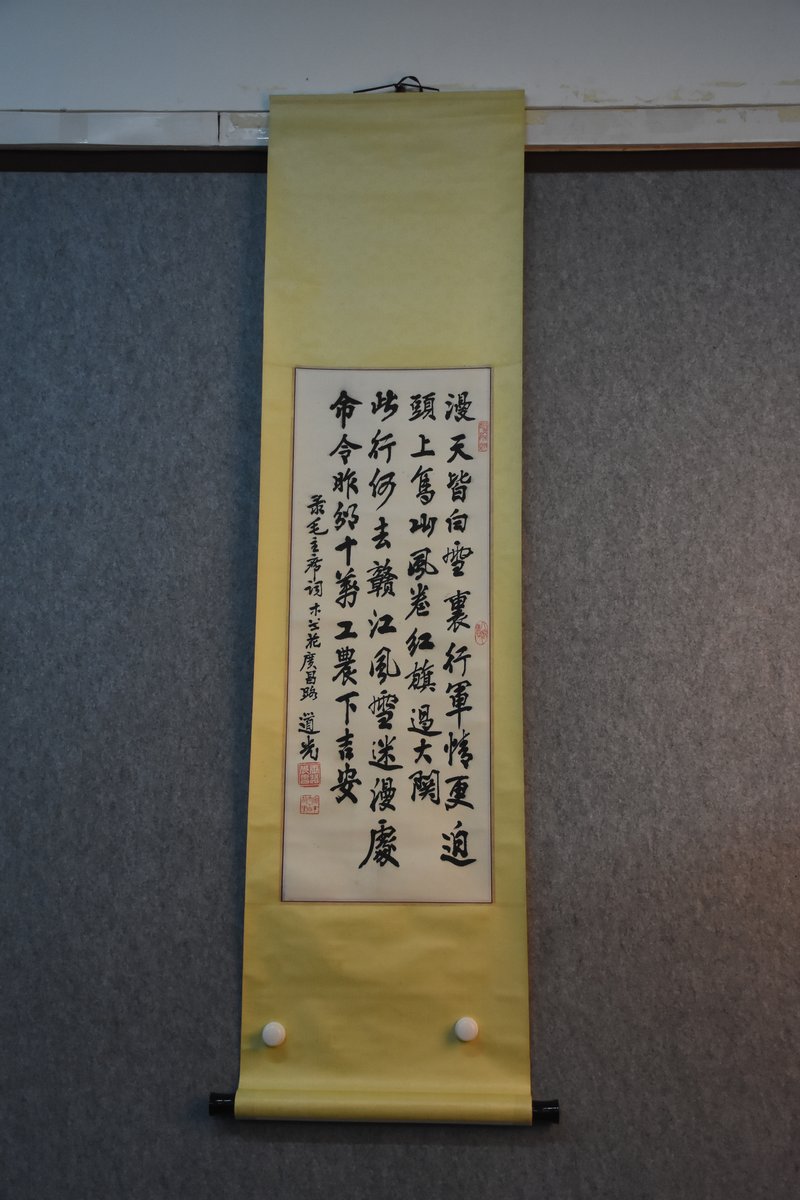 漫天皆白雪裏行軍情更迫
頭上高山風卷紅旗過大關
此行何去贛江風雪迷漫處
命令昨頒十萬工農下吉安
录毛主席词木兰花廣昌路 道光